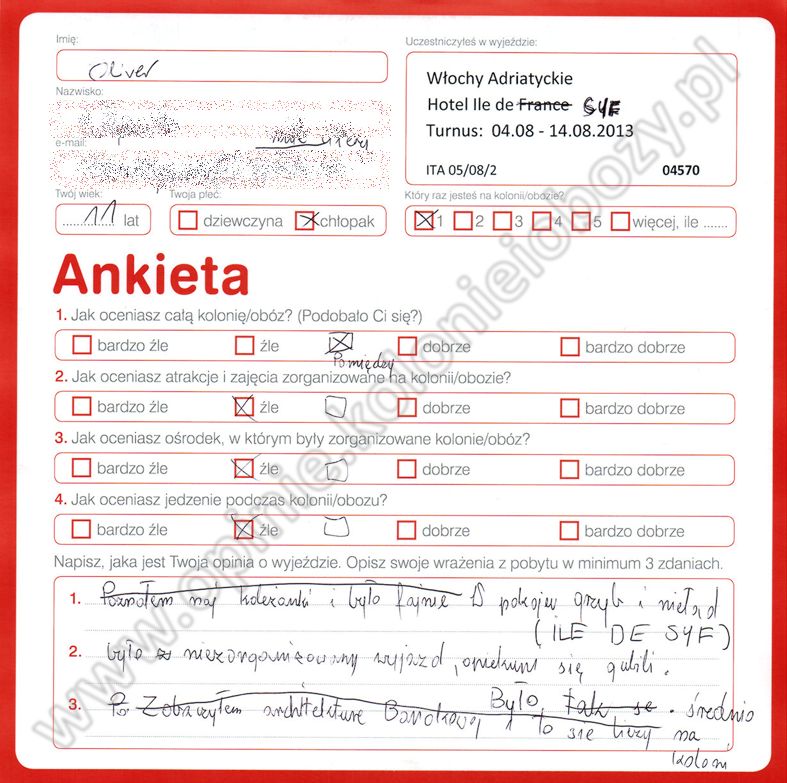 Imię:
Oliver
Uczestniczyłeś w wyjeździe:
Włochy Adriatyckie
Hotel Ile de France SYF
Turnus: 04.08 - 14.08.2013
ITA 05/08/2
04570
Nazwisko:
e-mail:
Twój wiek:
11 lat
Twoja płeć:
dziewczyna chłopak
Który raz jesteś na kolonii/obozie?
1 2 3 4 5 więcej, ile .......
Ankieta
1. Jak oceniasz całą kolonię/obóz? (Podobało Ci się?)
bardzo źle źle dobrze bardzo dobrze
Pomiędzy
2. Jak oceniasz atrakcje i zajęcia zorganizowane na kolonii/obozie?
bardzo źle źle dobrze bardzo dobrze
3. Jak oceniasz ośrodek, w którym były zorganizowane kolonie/obóz?
bardzo źle źle dobrze bardzo dobrze
4. Jak oceniasz jedzenie podczas kolonii/obozu?
bardzo źle źle dobrze bardzo dobrze
Napisz, jaka jest Twoja opinia o wyjeździe. Opisz swoje wrażenia z pobytu w minimum 3 zdaniach.
1. i było fajnie W pokojew grzyb i nieład
(ILE DE SYF)
2. było niezorganizowany wyjazd, opiekuni się gubili.
3. Po Zobaczyłem architekture Barokową i to się liczy
Było, tak se. średnio
na
koloni
www.opinie.kolonieiobozy.pl